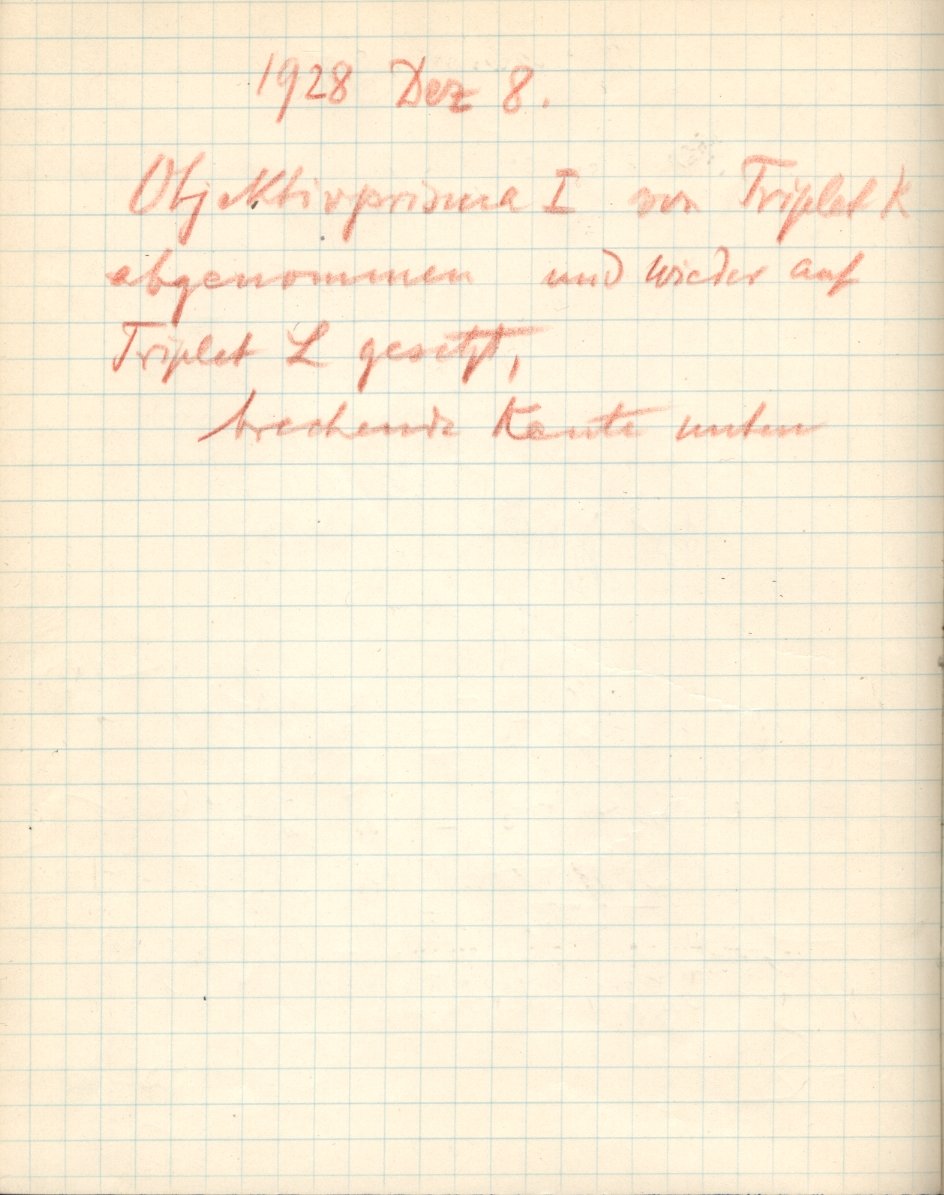 1928 Dez 8.
Objektivprisma I von Triplet K
abgenommen und wieder auf
Triplet L gesetzt,
brechende Kante unten